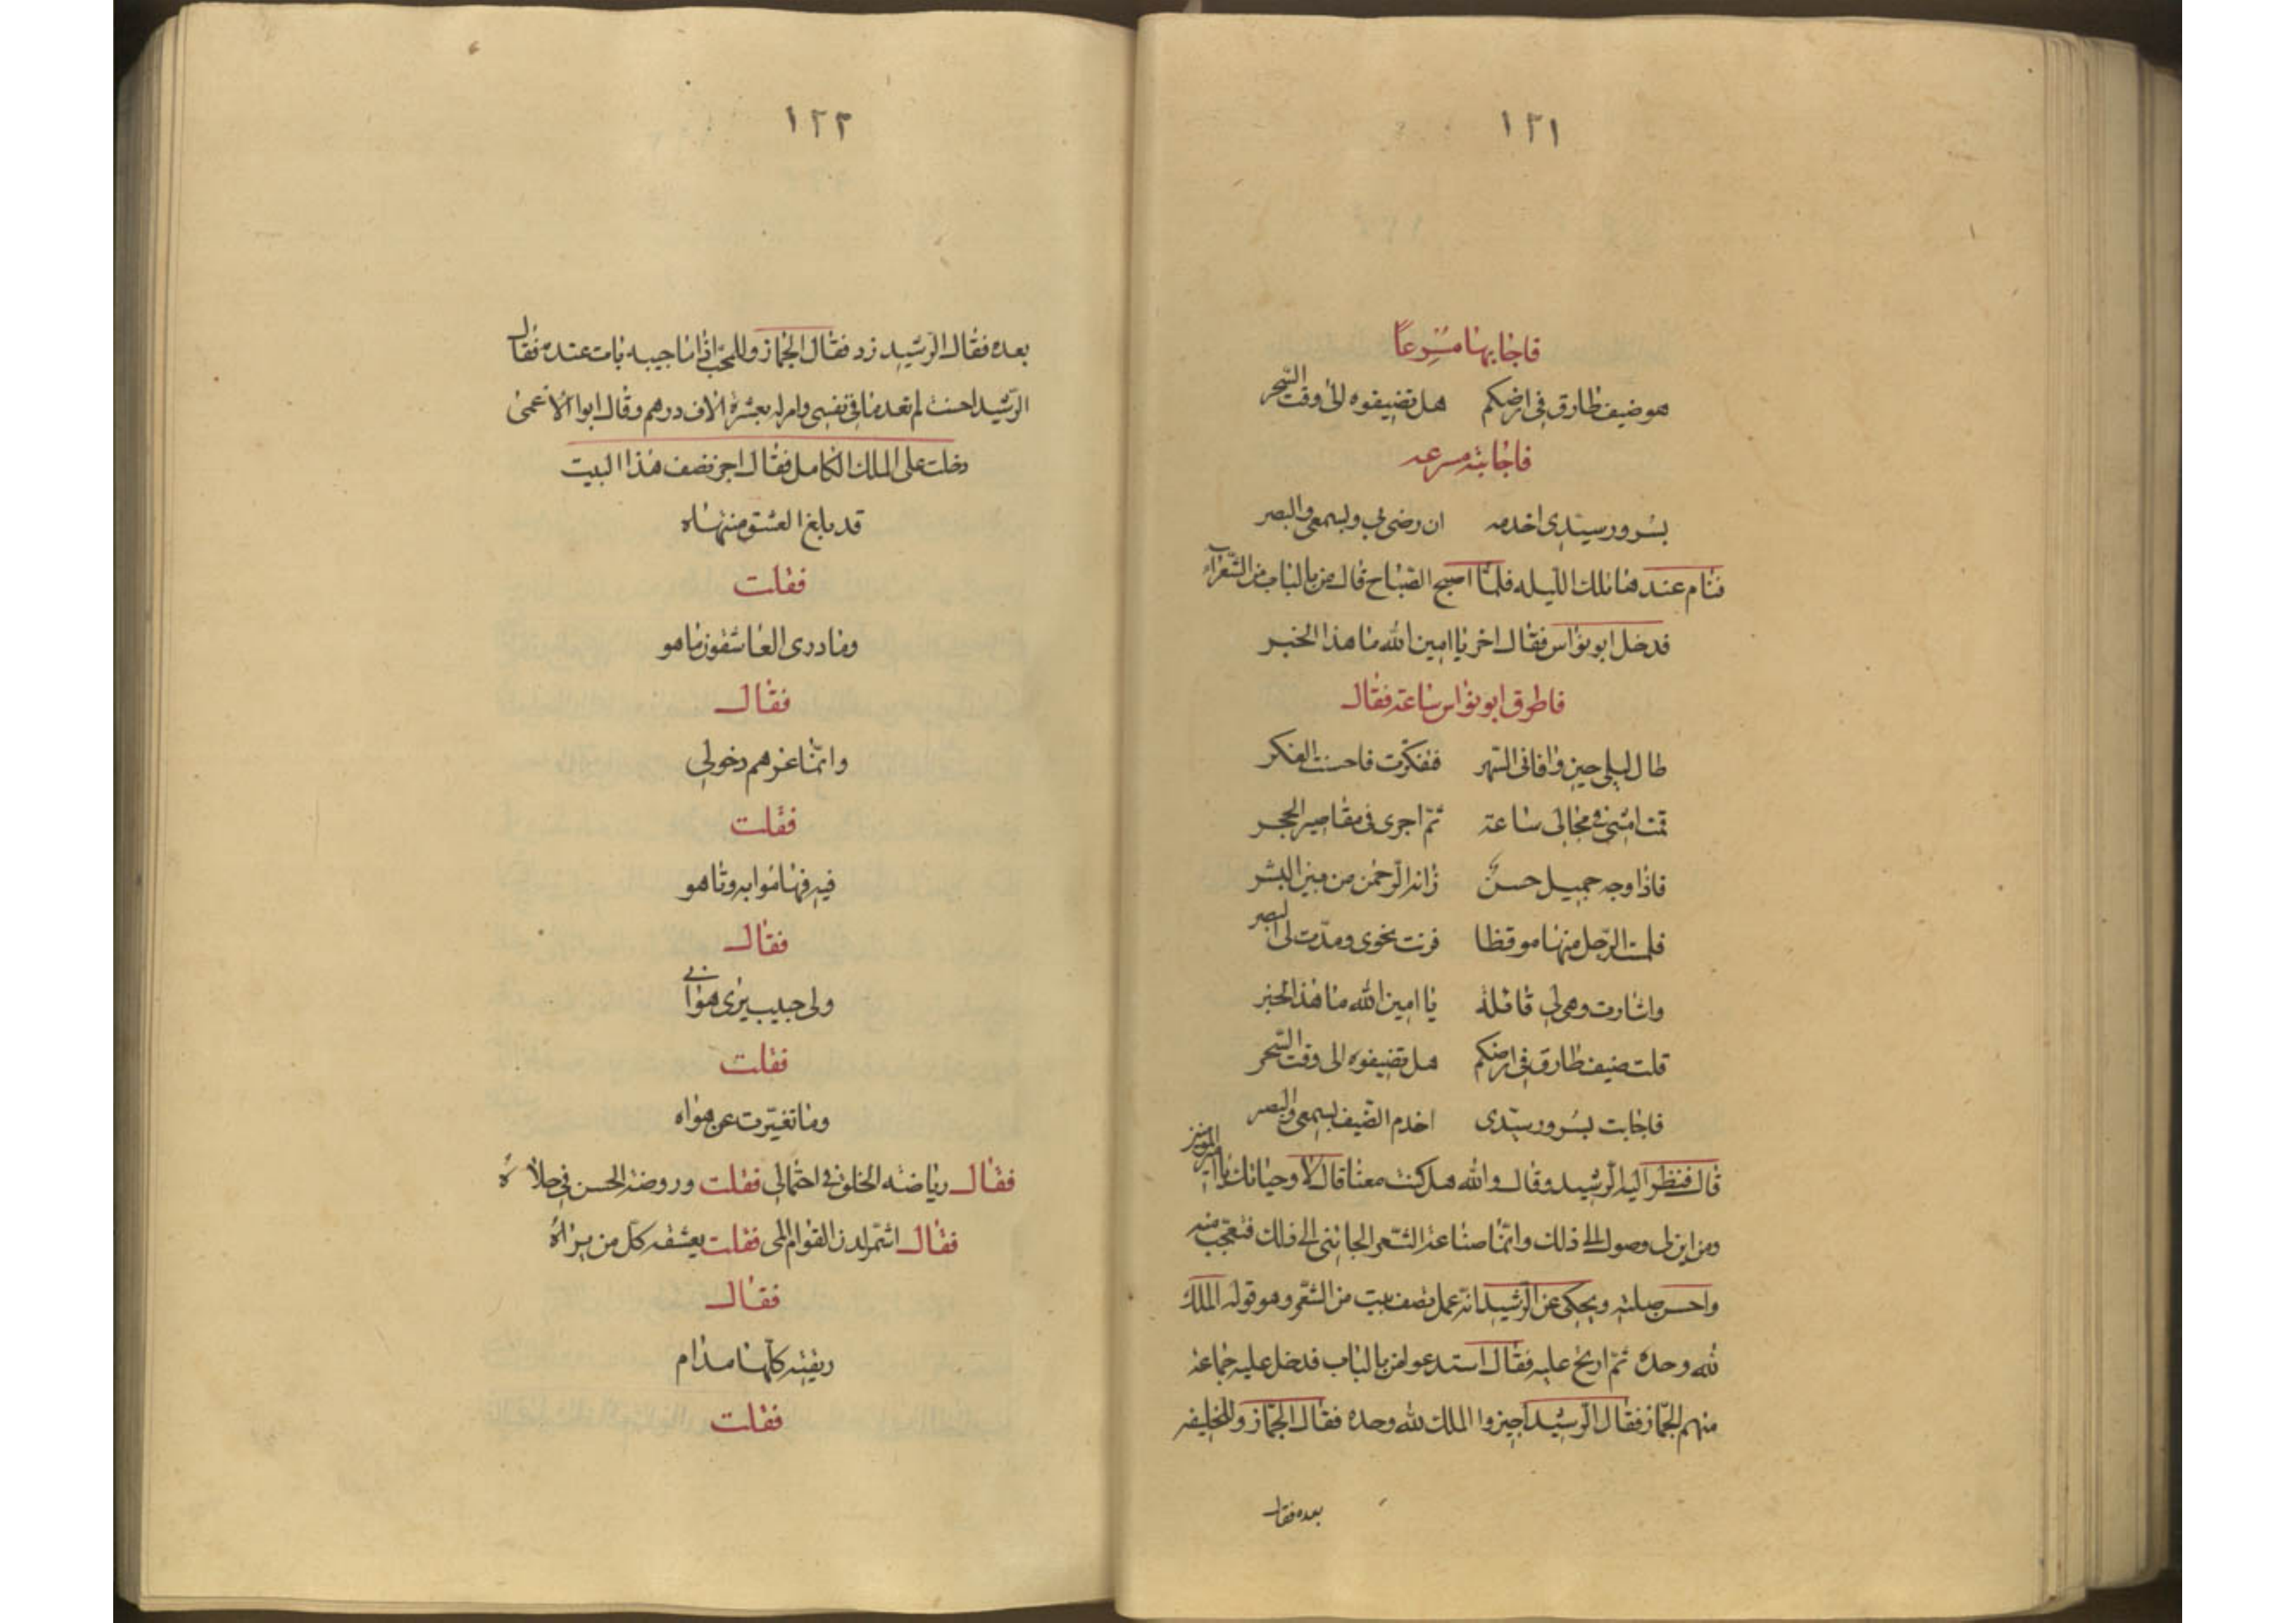 ١٢١
فاجابها مسرعاً
هو ضيف طارق في ارضكم هل تضيفوه الى وقت السحر
فاجابته مسرعه
بسرور سيدي اخدمه ان رضي بي وبسمعي والبصر
فنام عندها تلك الليله فلما اصبح الصباح قال من بالباب من الشعرآء
فدخل ابو نواس فقال اخر يا امين الله ما هذا الخبر
فاطرق ابو نواس ساعة فقال
طال ليلي حين وافاني السهر ففكرت فاحسنت الفكر
قمت امشي في مجالي ساعة ثم اجرى في مقاصير الحجر
فاذا وجه جميل حسنٌ زانه الرحمن من بين البشر
فلمست الرجل منها موقظا فرنت نحوى ومدت لى البصر
واشارت وهي لي قائلة يا امين الله ما هذا الخبر
قلت ضيف طارق في ارضكم هل تضيفوه الى وقت السحر
فاجابت بسرور سيدى اخدم الضيف بسمعي والبصر
قال فنظر اليه الرشيد وقال والله هل كنت معنا قال لا وحياتك يا امير المومنين
ومن اين لى وصول الى ذلك وانما صناعة الشعر الجاتني الى ذلك فتعجب منه
واحسن صلته ويحكى عن الرشيد انه عمل نصف بيت من الشعر وهو قوله الملك
لله وحده ثم ارتج عليه فقال استدعوا من بالباب فدخل عليه جماعة
منهم الجماز فقال الرشيد اجيزوا الملك لله وحده فقال الجماز وللخليفه
بعده فقال
١٢٢
بعده فقال الرشيد زد فقال الجماز وللمحب اذا ما حبيبه بات عنده فقال
الرشيد احسنت لم تعد ما في نفسي وامر له بعشرة الاف درهم وقال ابوا الاعمى
دخلت على الملك الكامل فقال اجز نصف هذا البيت
قد بلغ العشق منتهاه
فقلت
وما درى العاشقون ما هو
فقال
وانما غرهم دخولي
فقلت
فيه فهاموا به وتاهو
فقال
ولى حبيب يرى هواني
فقلت
وما تغيرت عن هواه
فقال رياضة الخلق في احتمالي فقلت وروضة الحسن في حلاه
فقال اسمر لدن القوام المى فقلت يعشقه كل من يراه
فقال
ريقته كلها مدام
فقلت